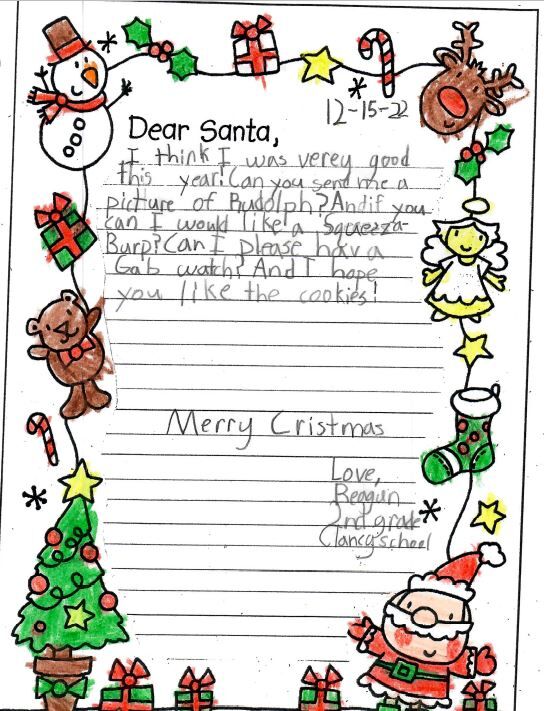 12-15-22
Dear Santa,
I think I was verey good
this year! Can you send me a
picture of Rudolph? And if you
can I would like a Squezza-
Burp? Can I please hav a
Gab watch? And I hope
you like the cookies!
Merry Cristmas
Love,
Reagun
2nd grade
Clancy school